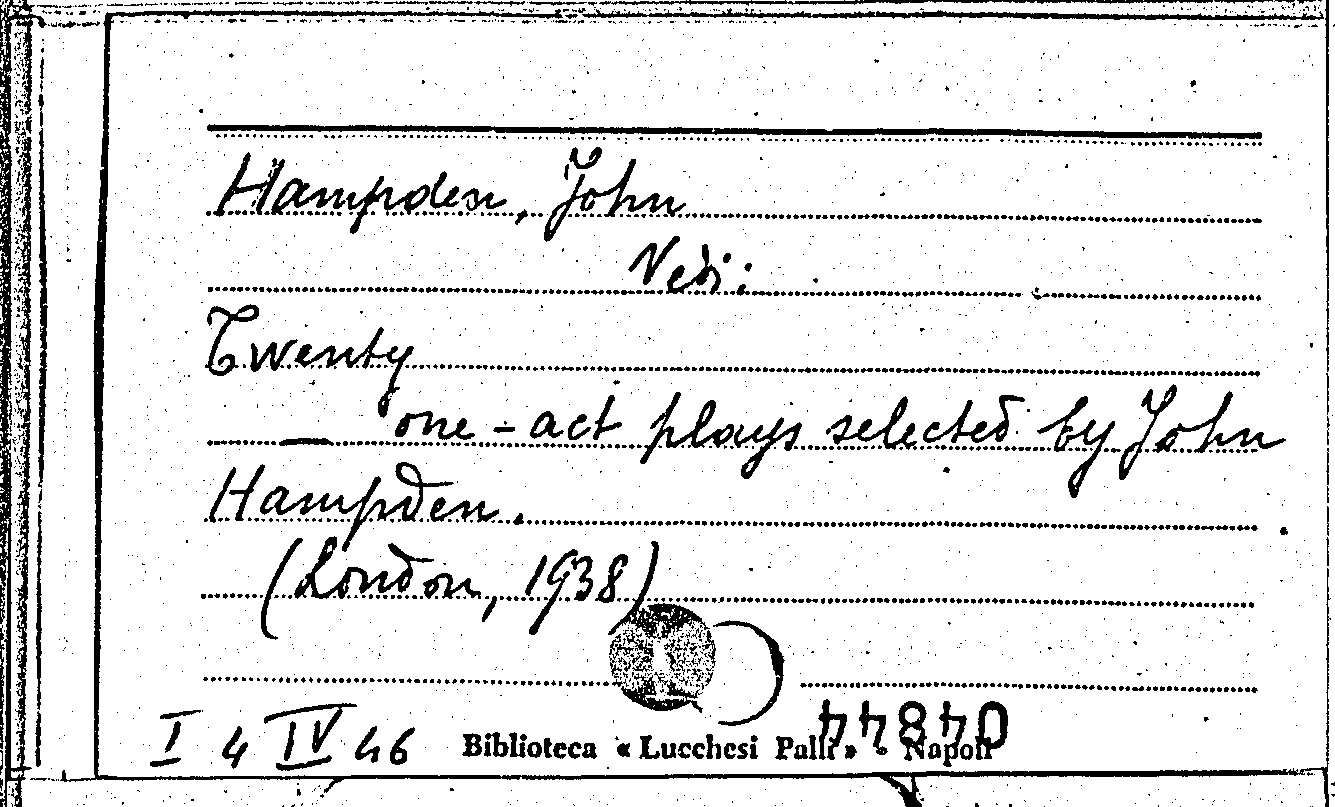 Hampden, John
Vedi:
Twenty
— one-act plays selected by John
Hampden.
(London, 1938)
I 4 IV 46 Biblioteca « Lucchesi Palli » - Napoli
04844